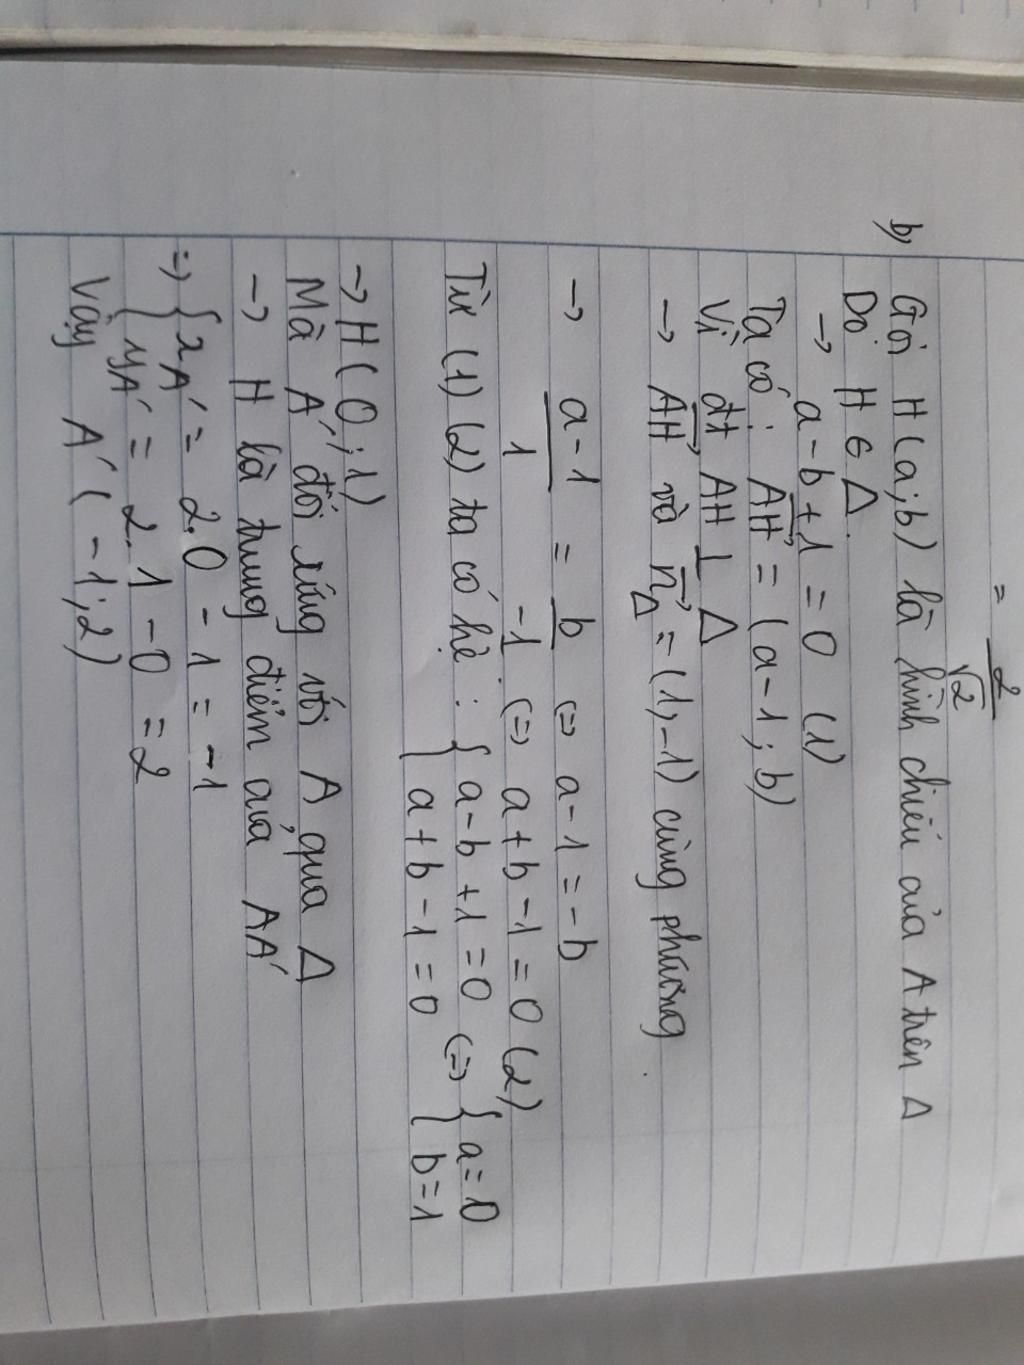 = 2/√2
b) Gọi H(a;b) là hình chiếu của A trên Δ
Do H ∈ Δ.
→ a-b+1=0 (1)
Ta có: AH→ = (a-1; b)
Vì đt AH ⊥ Δ
→ AH→ và n→Δ = (1,-1) cùng phương.
→ a-1/1 = b/-1 ⇔ a-1=-b
⇔ a+b-1=0 (2)
Từ (1) (2) ta có hệ: { a-b+1=0 ⇔ { a=0
{ a+b-1=0 { b=1
→ H(0;1)
Mà A' đối xứng với A qua Δ
→ H là trung điểm của AA'
⇒ { xA' = 2.0 - 1 = -1
{ yA' = 2.1 - 0 = 2
Vậy A'(-1;2)